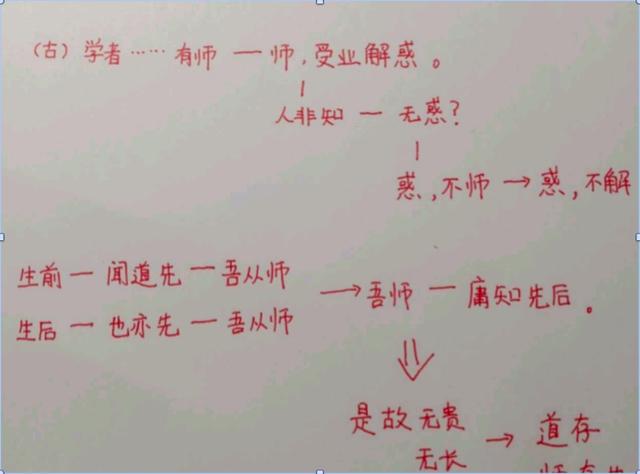 （古）学者……有师一师，受业解惑。
人非知一无惑？
惑，不师→惑，不解
生前一闻道先一吾从师
→吾师一庸知先后。
生后一也亦先一吾从师
是故无贵
无长
→道存